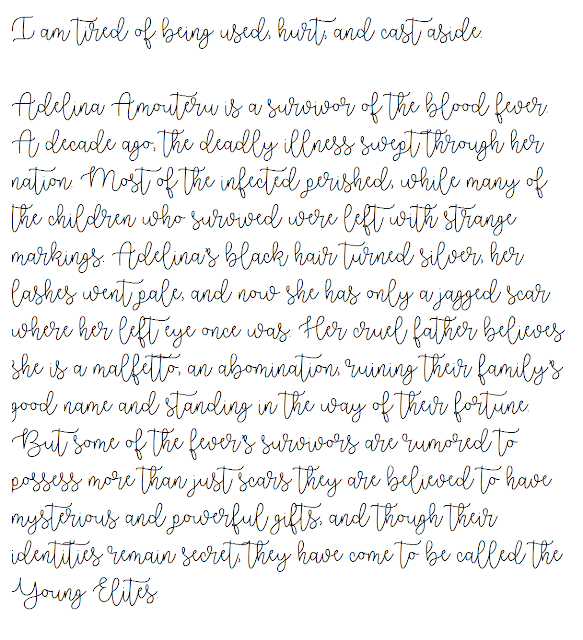 I am tired of being used, hurt, and cast aside.
Adelina Amouteru is a survivor of the blood fever.
A decade ago, the deadly illness swept through her
nation. Most of the infected perished, while many of
the children who survived were left with strange
markings. Adelina's black hair turned silver, her
lashes went pale, and now she has only a jagged scar
where her left eye once was. Her cruel father believes
she is a malfetto, an abomination, ruining their family's
good name and standing in the way of their fortune.
But some of the fever's survivors are rumored to
possess more than just scars they are believed to have
mysterious and powerful gifts, and though their
identities remain secret, they have come to be called the
Young Elites.